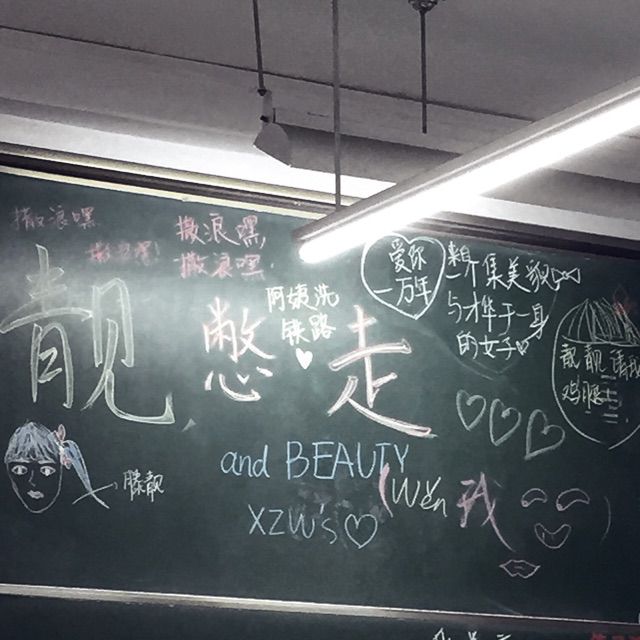 撒浪嘿
撒浪嘿
撒浪嘿,
撒浪嘿.
靓,憋走
阿姨洗
铁路
爱你
一万年
集美貌
与才华于一身
的女子
靓靓请我
鸡腿
滕靓
and BEAUTY
XZW's
(wěn
我